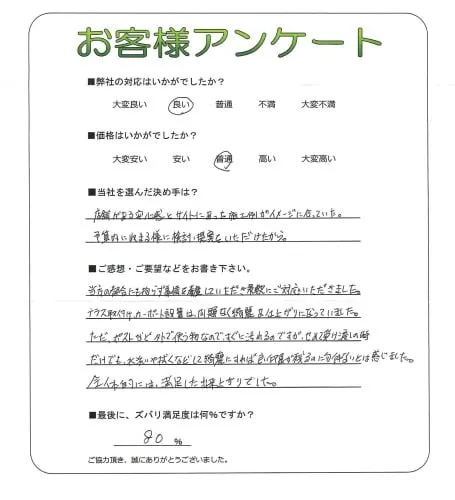 お客様アンケート
■弊社の対応はいかがでしたか?
大変良い 良い 普通 不満 大変不満
■価格はいかがでしたか?
大変安い 安い 普通 高い 大変高い
■当社を選んだ決め手は?
店舗がある安心感とサイトにあった施工例がイメージに合っていた。
予算内に収まる様に検討、提案をいただけたから。
■ご感想・ご要望などをお書き下さい。
当方の都合にも拘らず事情を して いただき柔軟にご対応いただきました。
テラス取付け、カーポート設置は、問題なく綺麗な仕上がりになっていました。
ただ、ポストなど外で使う物なので、すぐに汚れるのですが、せめて受け渡しの時
だけでも、水洗いや拭くなどして綺麗にすれば とは感じました。
全体的には、満足した出来上りでした。
■最後に、ズバリ満足度は何%ですか?
80 %
ご協力頂き、誠にありがとうございました。